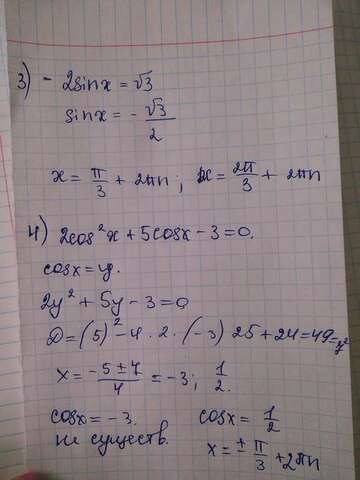 3) - 2sinx = √3
sinx = - √3/2
x = π/3 + 2πn ; x = 2π/3 + 2πn
4) 2cos²x + 5cosx - 3 = 0.
cosx = y.
2y² + 5y - 3 = 0
D = (5)² - 4 · 2 · (-3) 25 + 24 = 49 = 7²
x = -5 ± 7/4 = -3 ; 1/2.
cosx = -3. cosx = 1/2
не существ. x = ± π/3 + 2πn